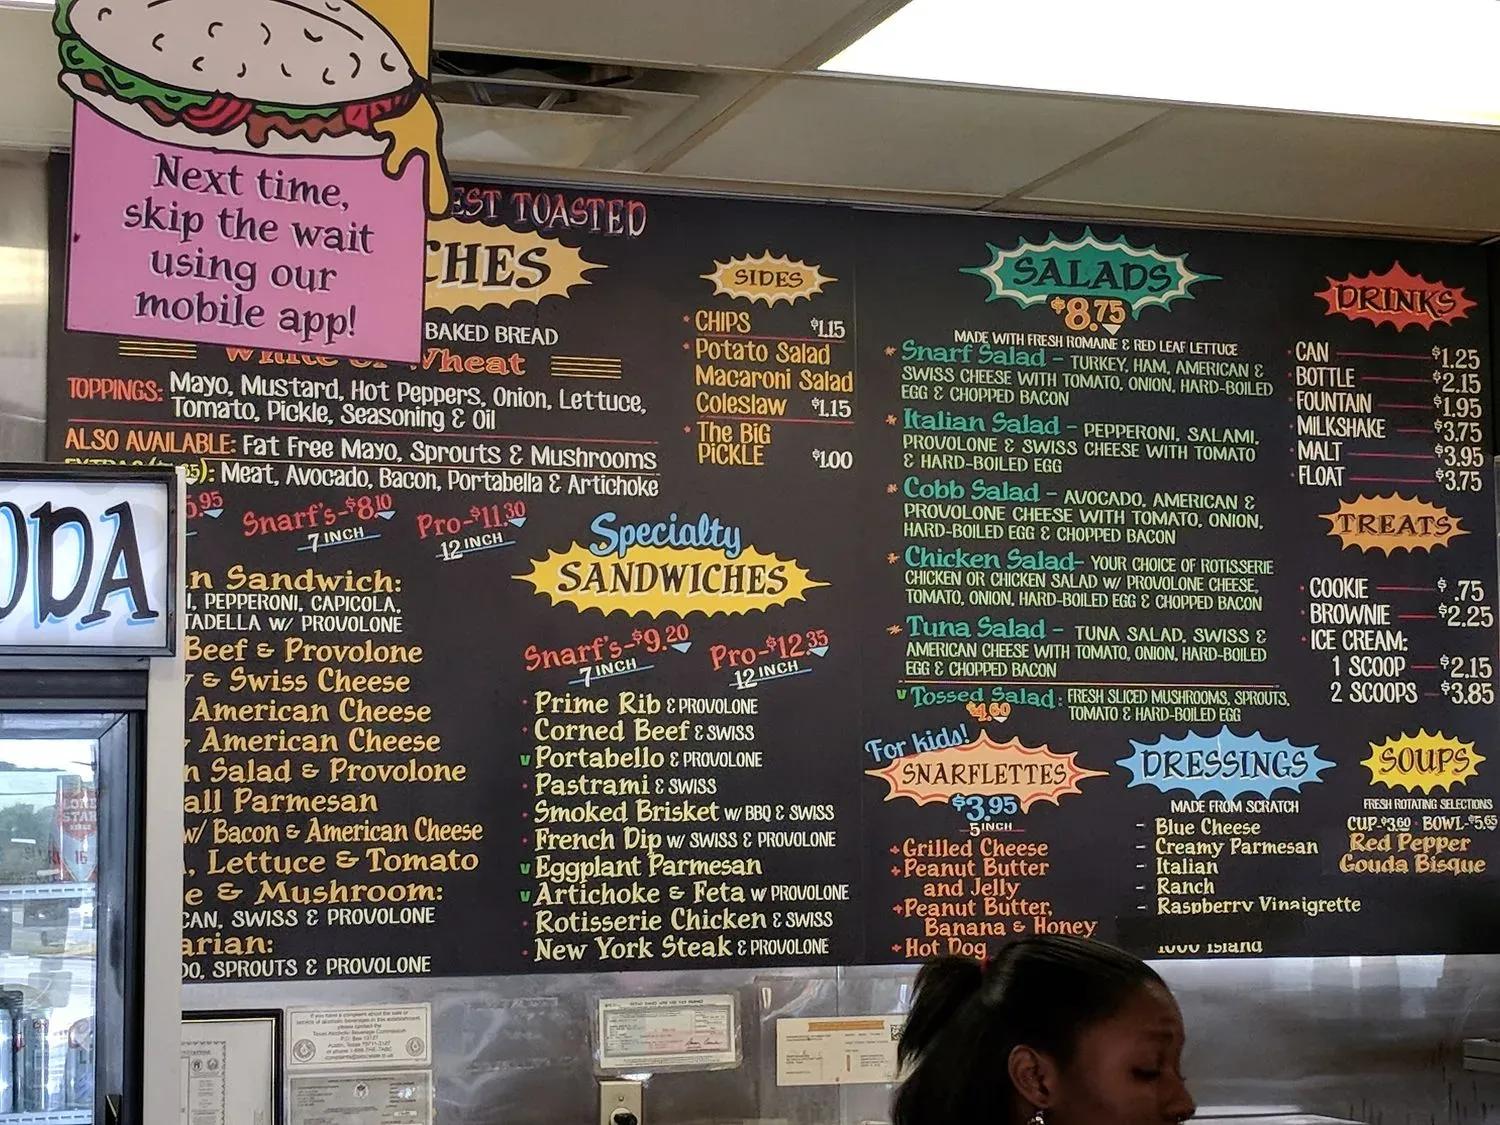 Next time,
skip the wait
using our
mobile app!
EST TOASTED
CHES
BAKED BREAD
White or Wheat
TOPPINGS: Mayo, Mustard, Hot Peppers, Onion, Lettuce,
Tomato, Pickle, Seasoning & Oil
ALSO AVAILABLE: Fat Free Mayo, Sprouts & Mushrooms
Meat, Avocado, Bacon, Portabella & Artichoke
.95
Snarf's-$8.10
7 INCH
Pro-$11.30
12 INCH
ODA
n Sandwich:
I, PEPPERONI, CAPICOLA,
TADELLA W/ PROVOLONE
Beef & Provolone
& Swiss Cheese
American Cheese
American Cheese
n Salad & Provolone
all Parmesan
w/ Bacon & American Cheese
, Lettuce & Tomato
e & Mushroom:
CAN, SWISS & PROVOLONE
arian:
DO, SPROUTS & PROVOLONE
SIDES
CHIPS $1.15
Potato Salad
Macaroni Salad
Coleslaw $1.15
The BIG
PICKLE $1.00
Specialty
SANDWICHES
Snarf's-$9.20
7 INCH
Pro-$12.35
12 INCH
Prime Rib & PROVOLONE
Corned Beef & SWISS
v Portabello & PROVOLONE
Pastrami & SWISS
Smoked Brisket w/ BBQ & SWISS
French Dip w/ SWISS & PROVOLONE
v Eggplant Parmesan
v Artichoke & Feta w PROVOLONE
Rotisserie Chicken & SWISS
New York Steak & PROVOLONE
SALADS
$8.75
MADE WITH FRESH ROMAINE & RED LEAF LETTUCE
Snarf Salad - TURKEY, HAM, AMERICAN &
SWISS CHEESE WITH TOMATO, ONION, HARD-BOILED
EGG & CHOPPED BACON
Italian Salad - PEPPERONI, SALAMI,
PROVOLONE & SWISS CHEESE WITH TOMATO
& HARD-BOILED EGG
Cobb Salad - AVOCADO, AMERICAN &
PROVOLONE CHEESE WITH TOMATO, ONION,
HARD-BOILED EGG & CHOPPED BACON
Chicken Salad- YOUR CHOICE OF ROTISSERIE
CHICKEN OR CHICKEN SALAD W/ PROVOLONE CHEESE,
TOMATO, ONION, HARD-BOILED EGG & CHOPPED BACON
Tuna Salad - TUNA SALAD, SWISS &
AMERICAN CHEESE WITH TOMATO, ONION, HARD-BOILED
EGG & CHOPPED BACON
v Tossed Salad: FRESH SLICED MUSHROOMS, SPROUTS,
$4.60 TOMATO & HARD-BOILED EGG
For kids!
SNARFLETTES
$3.95
5 INCH
Grilled Cheese
Peanut Butter
and Jelly
Peanut Butter,
Banana & Honey
Hot Dog
DRESSINGS
MADE FROM SCRATCH
- Blue Cheese
- Creamy Parmesan
- Italian
- Ranch
- Raspberry Vinaigrette
1000 Island
DRINKS
CAN $1.25
BOTTLE $2.15
FOUNTAIN $1.95
MILKSHAKE $3.75
MALT $3.95
FLOAT $3.75
TREATS
COOKIE $.75
BROWNIE $2.25
ICE CREAM:
1 SCOOP $2.15
2 SCOOPS $3.85
SOUPS
FRESH ROTATING SELECTIONS
CUP-$3.60 · BOWL-$5.65
Red Pepper
Gouda Bisque
LONE
STAR
16